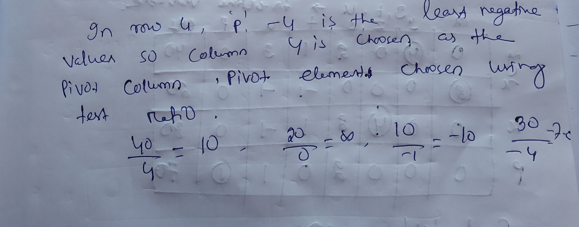 In row 4, ip. -4 is the least negative
values so column 4 is choosen as the
Pivot column, Pivot elements choosen using
test ratio.
40/4 = 10, 20/0 = ∞, 10/-1 = -10 30/-4